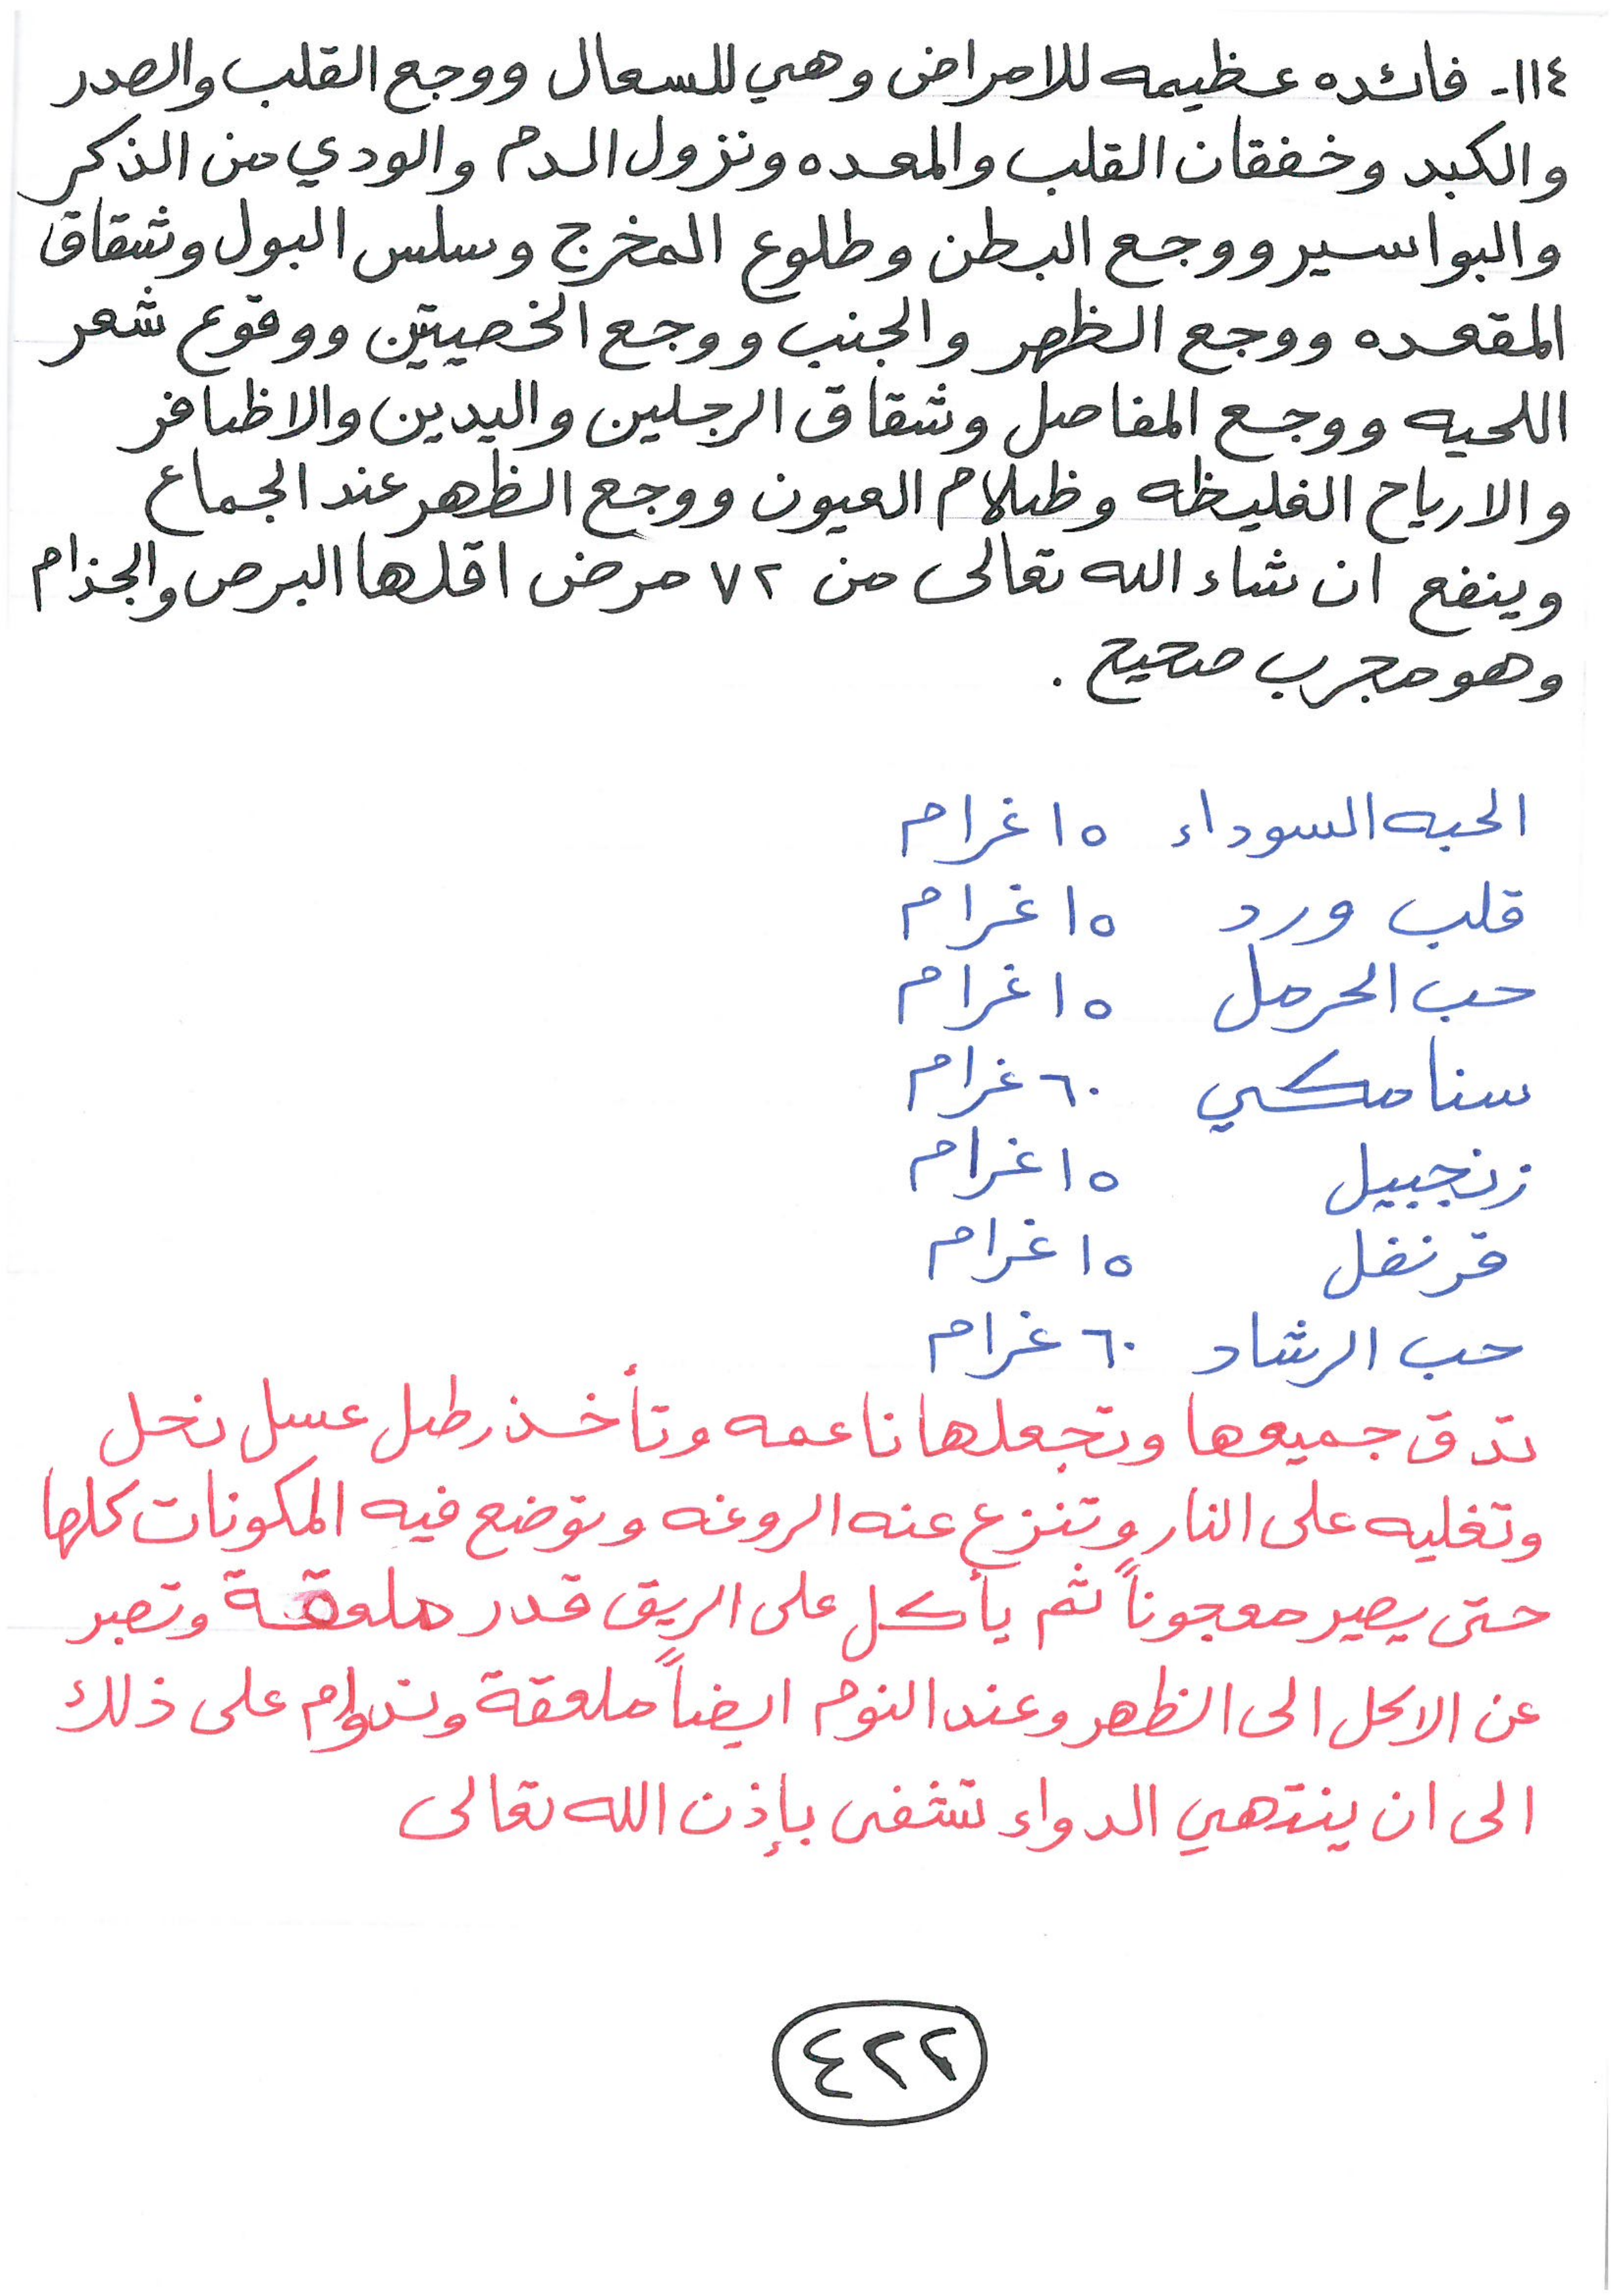 ١١٤- فائده عظيمه للامراض وهي للسعال ووجع القلب والصدر
والكبد وخفقان القلب والمعده ونزول الدم والودي من الذكر
والبواسير ووجع البطن وطلوع المخرج وسلس البول وشقاق
المقعده ووجع الظهر والجنب ووجع الخصيتين ووقوع شعر
اللحيه ووجع المفاصل وشقاق الرجلين واليدين والاظافر
والارياح الغليظه وظلام العيون ووجع الظهر عند الجماع
وينفع ان شاء الله تعالى من ٧٢ مرض اقلها البرص والجذام
وهو مجرب صحيح .
الحبه السوداء ١٥ غرام
قلب ورد ١٥ غرام
حب الحرمل ١٥ غرام
سنا مكي ٦٠ غرام
زنجبيل ١٥ غرام
قرنفل ١٥ غرام
حب الرشاد ٦٠ غرام
تدق جميعها وتجعلها ناعمه وتأخذ رطل عسل نحل
وتغليه على النار وتنزع عنه الروغه وتوضع فيه المكونات كلها
حتى يصير معجوناً ثم يأكل على الريق قدر ملعقة وتصبر
عن الاكل الى الظهر وعند النوم ايضاً ملعقة وتداوم على ذلك
الى ان ينتهي الدواء تشفى بإذن الله تعالى
٤٢٢